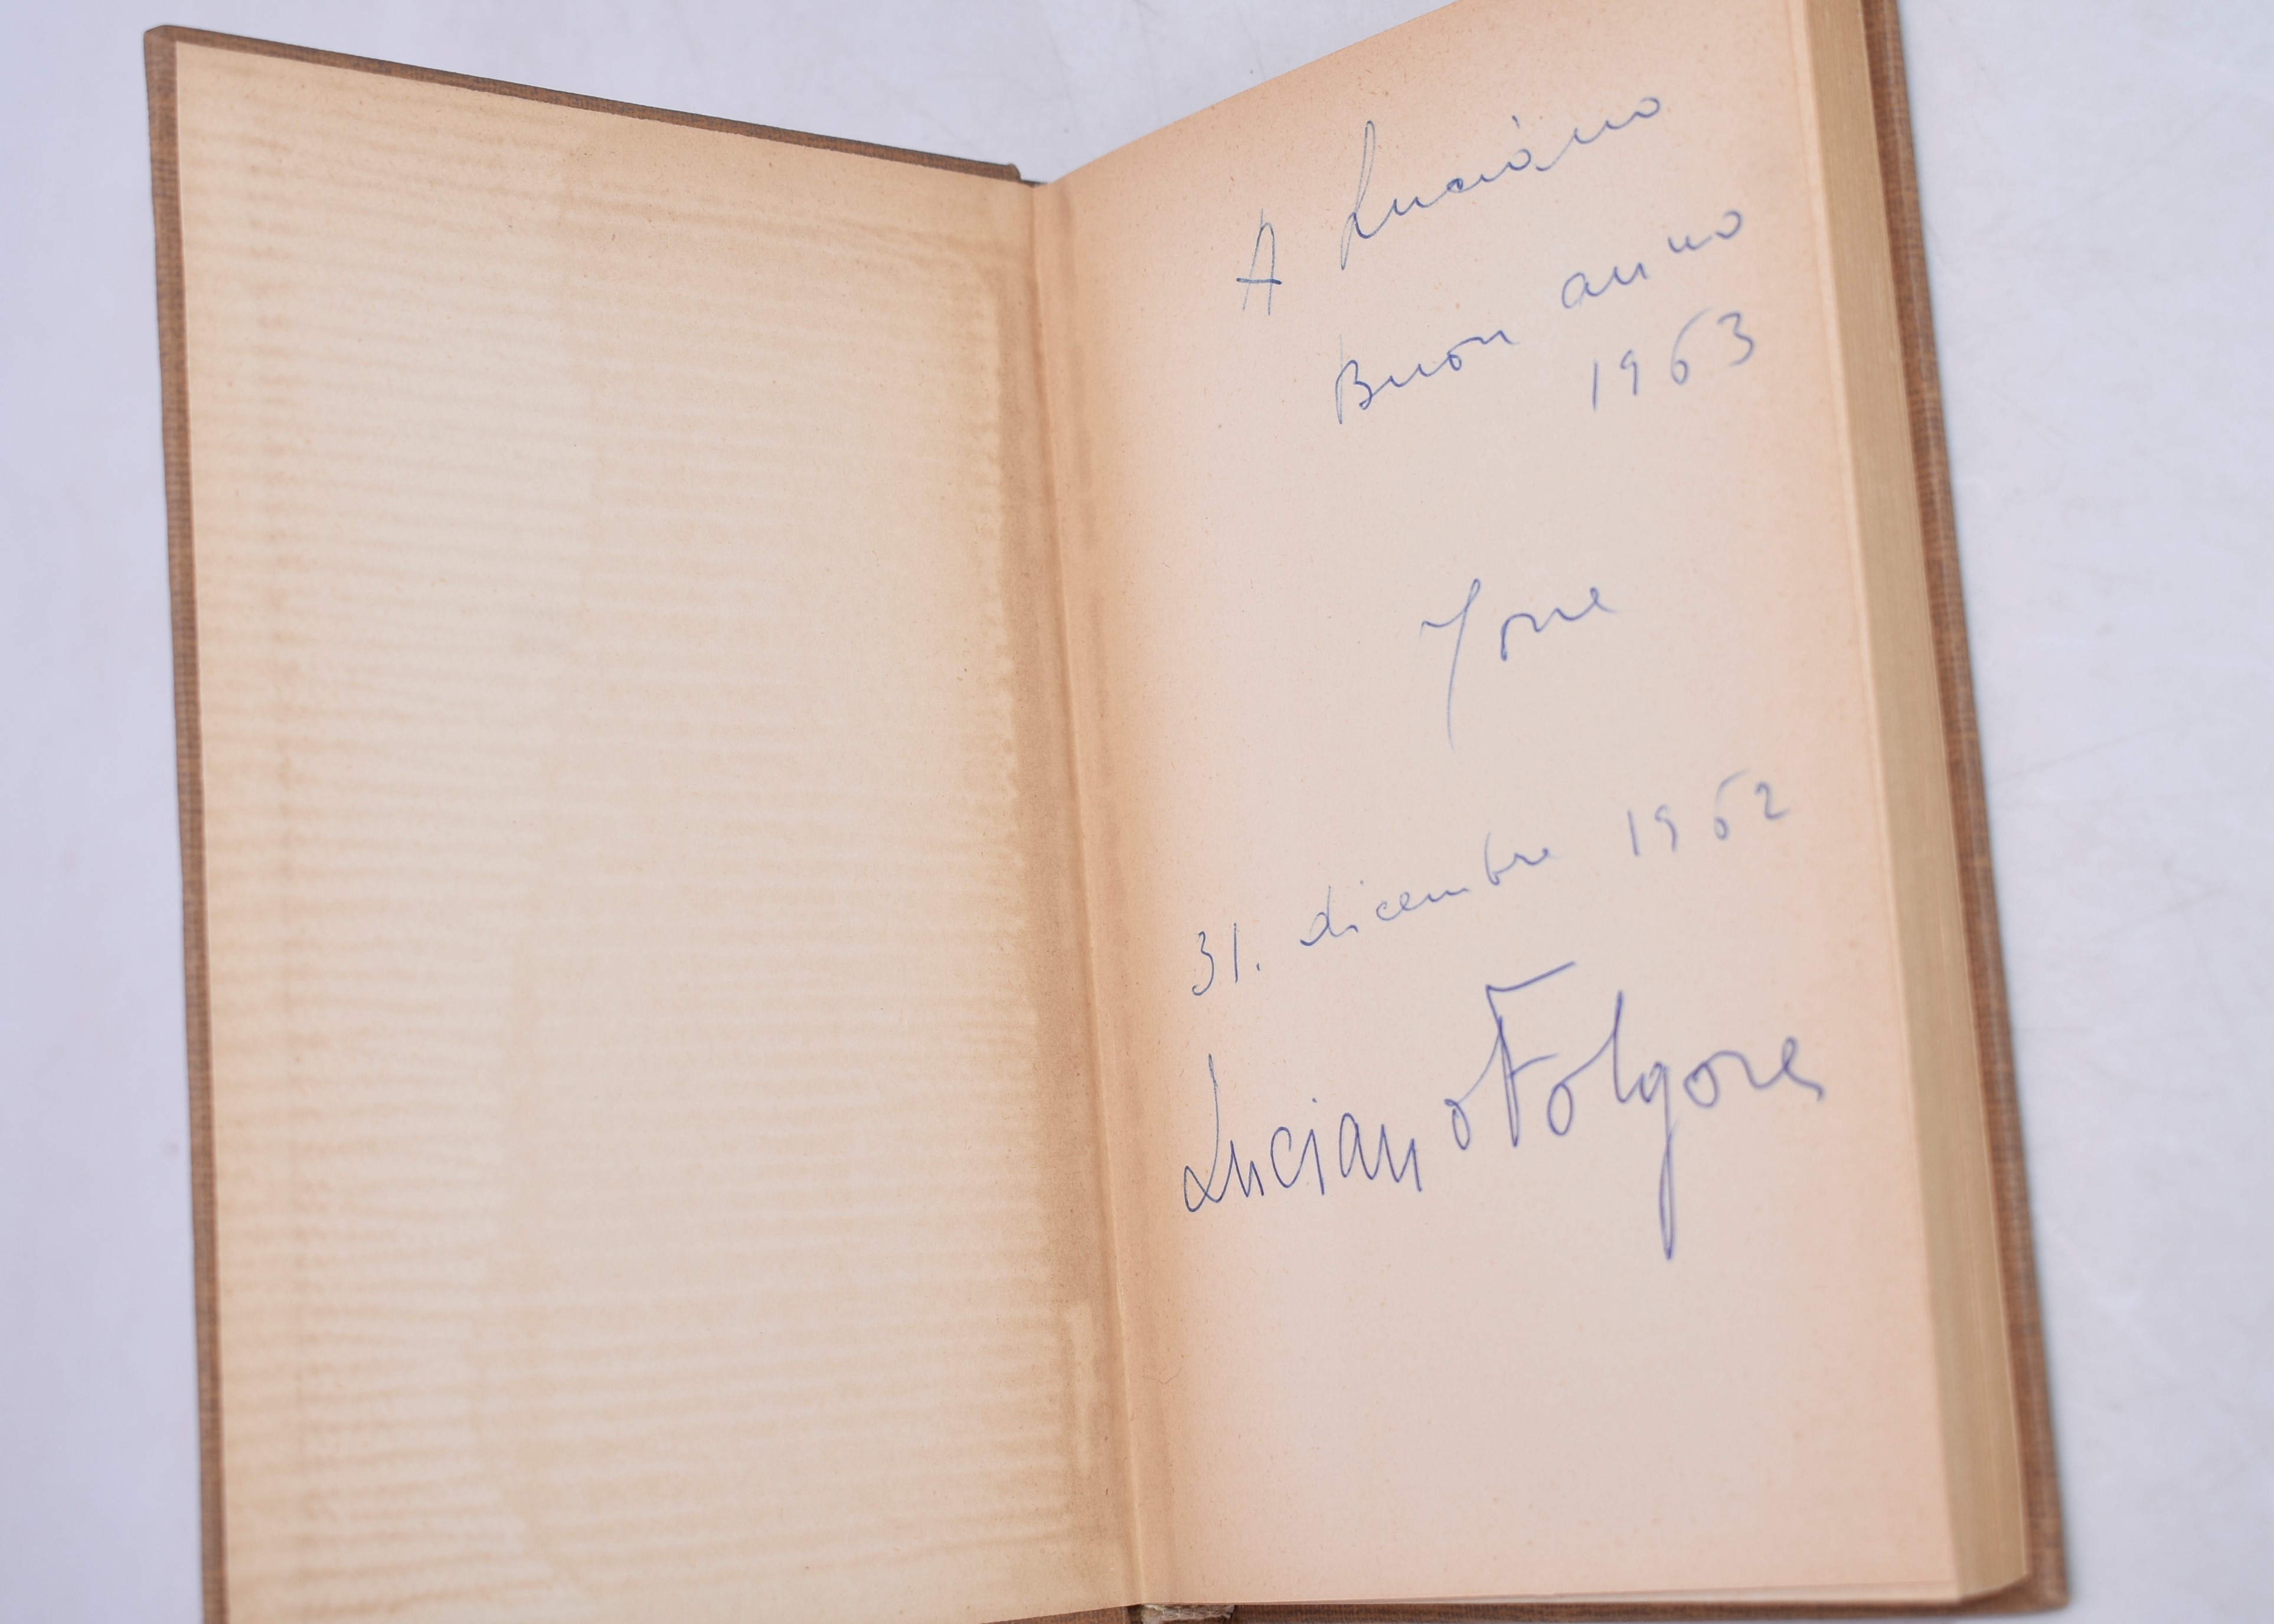 A Luciano
Buon anno
1963
Jone
31. dicembre 1962
Luciano Folgore